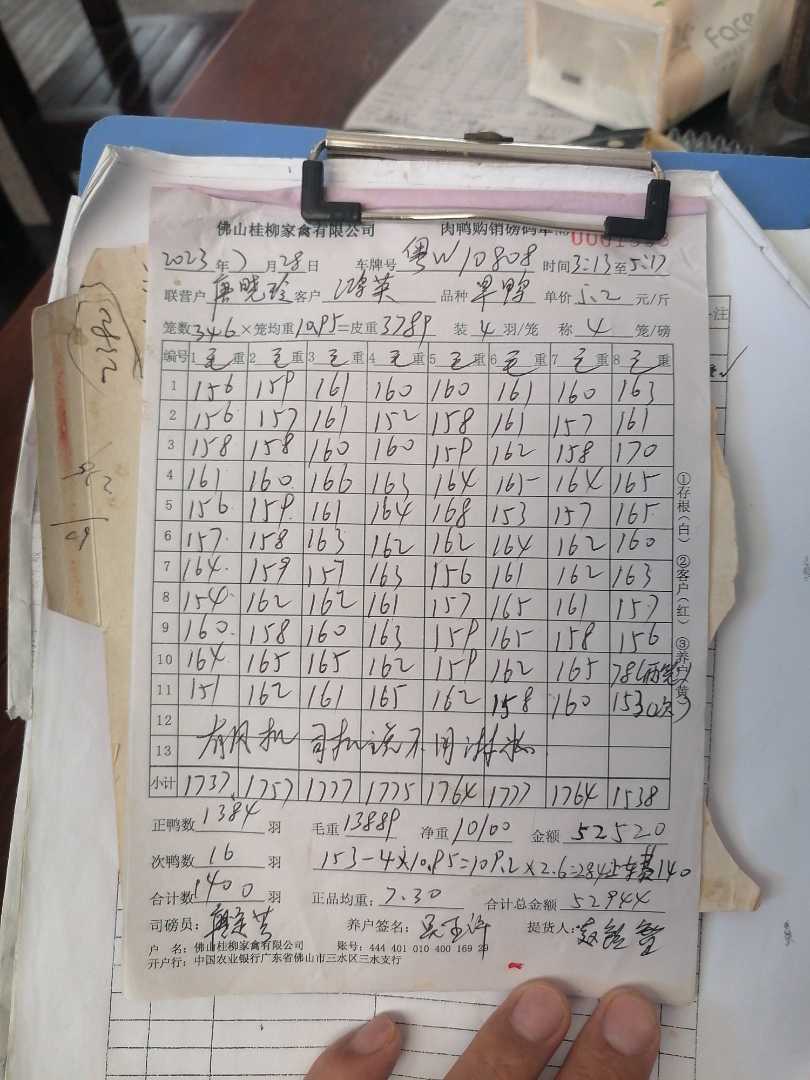 佛山桂柳家禽有限公司 肉鸭购销磅码单
2023年7月28日 车牌号 粤W10808 时间3:13至5:17
联营户 唐晓玲 客户 鸿英 品种 旱鸭 单价 5.2 元/斤
笼数346×笼均重10.95=皮重3789 装4羽/笼 称4笼/磅
编号 1毛重 2毛重 3毛重 4毛重 5毛重 6毛重 7毛重 8毛重
1 156 159 161 160 160 161 160 163
2 156 157 161 152 158 161 157 161
3 158 158 160 160 159 162 158 170
4 161 160 166 163 164 165 164 165
5 156 159 161 164 168 153 157 165
6 157 158 163 162 162 164 162 160
7 164 159 157 163 156 161 162 163
8 154 162 162 161 157 165 161 157
9 160 158 160 163 159 165 158 156
10 164 165 165 162 159 162 165 78(两笼)
11 151 162 161 165 162 158 160 153(次)
12
13 司机说不用淋水
小计 1737 1757 1777 1775 1764 1777 1764 1538
正鸭数1384羽 毛重13889 净重10100 金额52520
次鸭数16羽 153-4×10.95=109.2×2.6=284 车费140
合计数1400羽 正品均重:7.30 合计总金额52944
司磅员: 养户签名: 提货人:
户 名:佛山桂柳家禽有限公司 账号:444 401 010 400 169 29
开户行:中国农业银行广东省佛山市三水区三水支行
①存根(白) ②客户(红) ③养户(黄)
Face